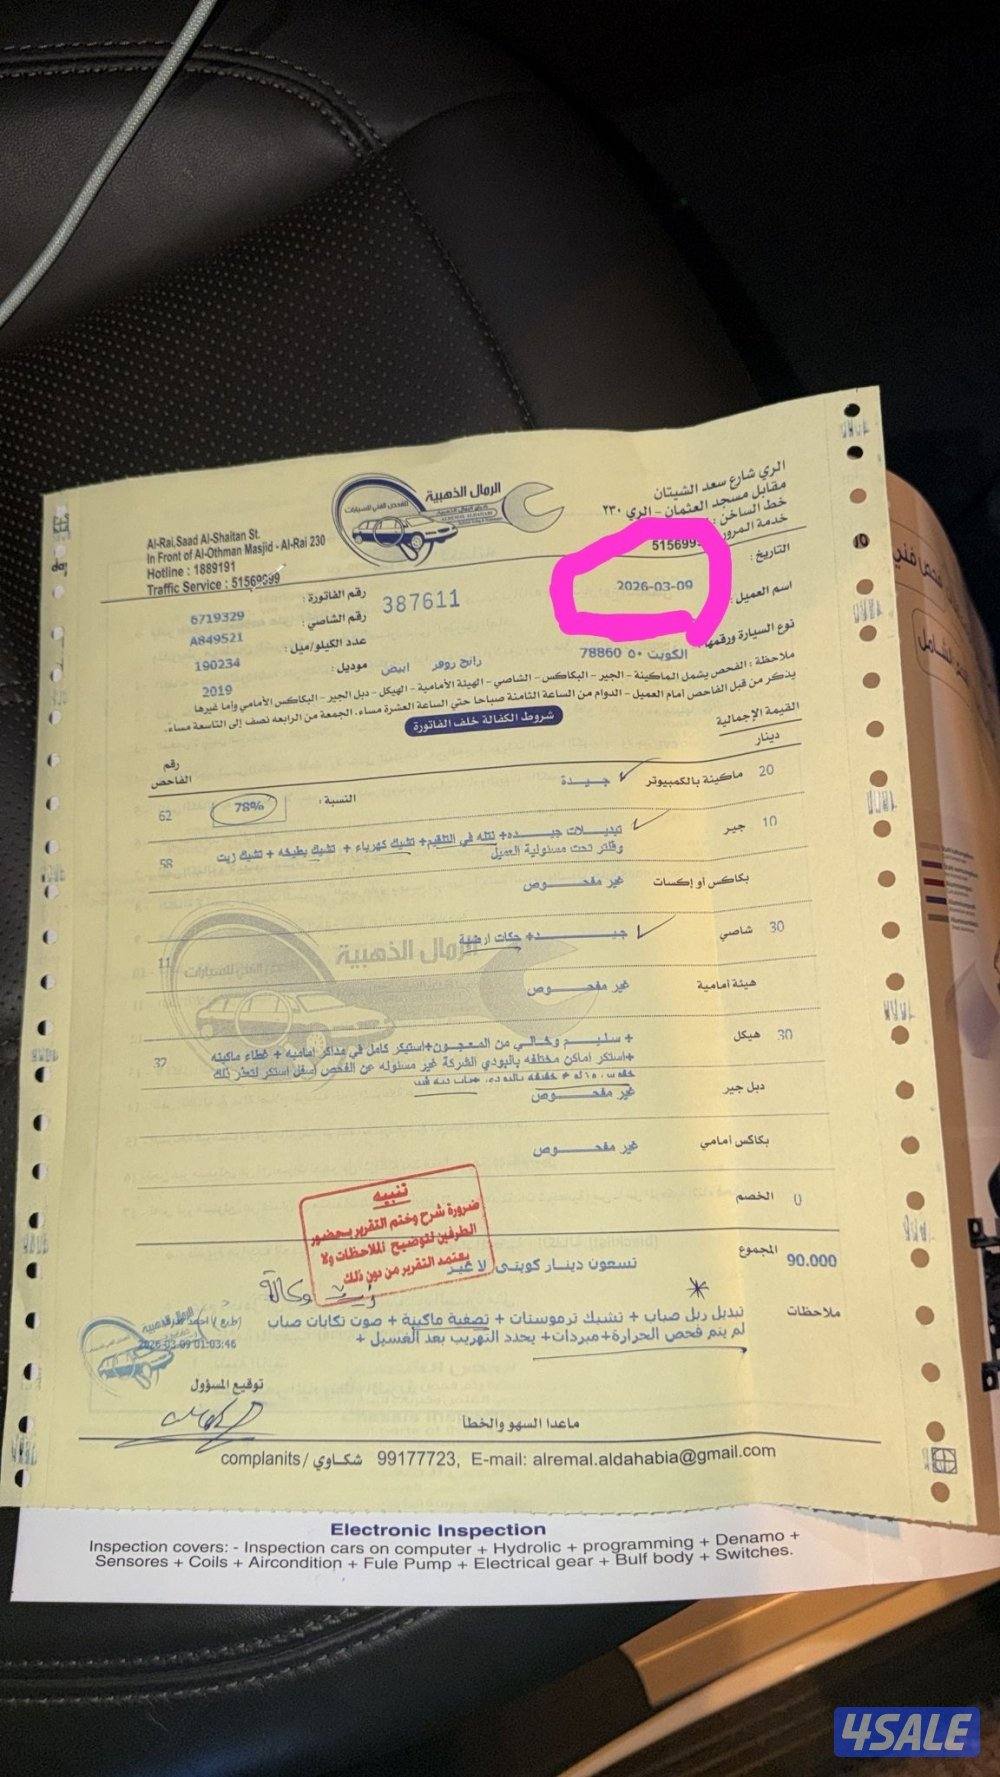 الرمال الذهبية
للفحص الفني للسيارات
ALREMAL ALDAHABI
الري شارع سعد الشيتان
مقابل مسجد العثمان - الري ٢٣٠
خط الساخن :
خدمة المرور
Al-Rai,Saad Al-Shaitan St.
In Front of Al-Othman Masjid - Al-Rai 230
Hotline : 1889191
Traffic Service : 51569699
التاريخ :
2026-03-09
رقم الفاتورة :
387611
6719329
اسم العميل :
رقم الشاصي :
A849521
نوع السيارة ورقمها
الكويت ٥٠ 78860
رانج روفر ابيض
عدد الكيلو/ميل :
190234
موديل :
2019
ملاحظة : الفحص يشمل الماكينة - الجير - البكاكس - الشاصي - الهيئة الأمامية - الهيكل - دبل الجير - البكاكس الأمامي وأما غيرها
يذكر من قبل الفاحص امام العميل - الدوام من الساعة الثامنة صباحا حتى الساعة العشرة مساء. الجمعة من الرابعه نصف إلى التاسعة مساء.
شروط الكفالة خلف الفاتورة
القيمة الإجمالية
دينار
رقم
الفاحص
20 ماكينة بالكمبيوتر جيدة
النسبة : 78% 62
10 جير تبديلات جيده+ نتله في التلقيم+ تشيك كهرباء + تشيك بطيخه + تشيك زيت
وفلتر تحت مسئولية العميل 58
بكاكس أو إكسات غير مفحوص
30 شاصي جيد+ حكات ارضية 11
هيئة أمامية غير مفحوص
30 هيكل + سليم وخالي من المعجون+استيكر كامل في مداكر اماميه + غطاء ماكينه
+استكر اماكن مختلفه بالبودي الشركة غير مسئوله عن الفحص اسفل استكر لتعذر ذلك
37
دبل جير غير مفحوص
بكاكس أمامي غير مفحوص
الخصم 0
تنبيه
ضرورة شرح وختم التقرير بحضور
الطرفين لتوضيح الملاحظات ولا
يعتمد التقرير من دون ذلك
المجموع 90.000
تسعون دينار كويتى لا غير
ملاحظات
تبديل ربل صباب + تشيك ترموستات + تصفية ماكينة + صوت تكايات صباب
لم يتم فحص الحرارة+مبردات+ يحدد التهريب بعد الغسيل +
2026-03-09 01:03:46
توقيع المسؤول
ماعدا السهو والخطأ
complanits / شكاوي 99177723, E-mail: alremal.aldahabia@gmail.com
Electronic Inspection
Inspection covers: - Inspection cars on computer + Hydrolic + programming + Denamo +
Sensores + Coils + Aircondition + Fule Pump + Electrical gear + Bulf body + Switches.
4SALE